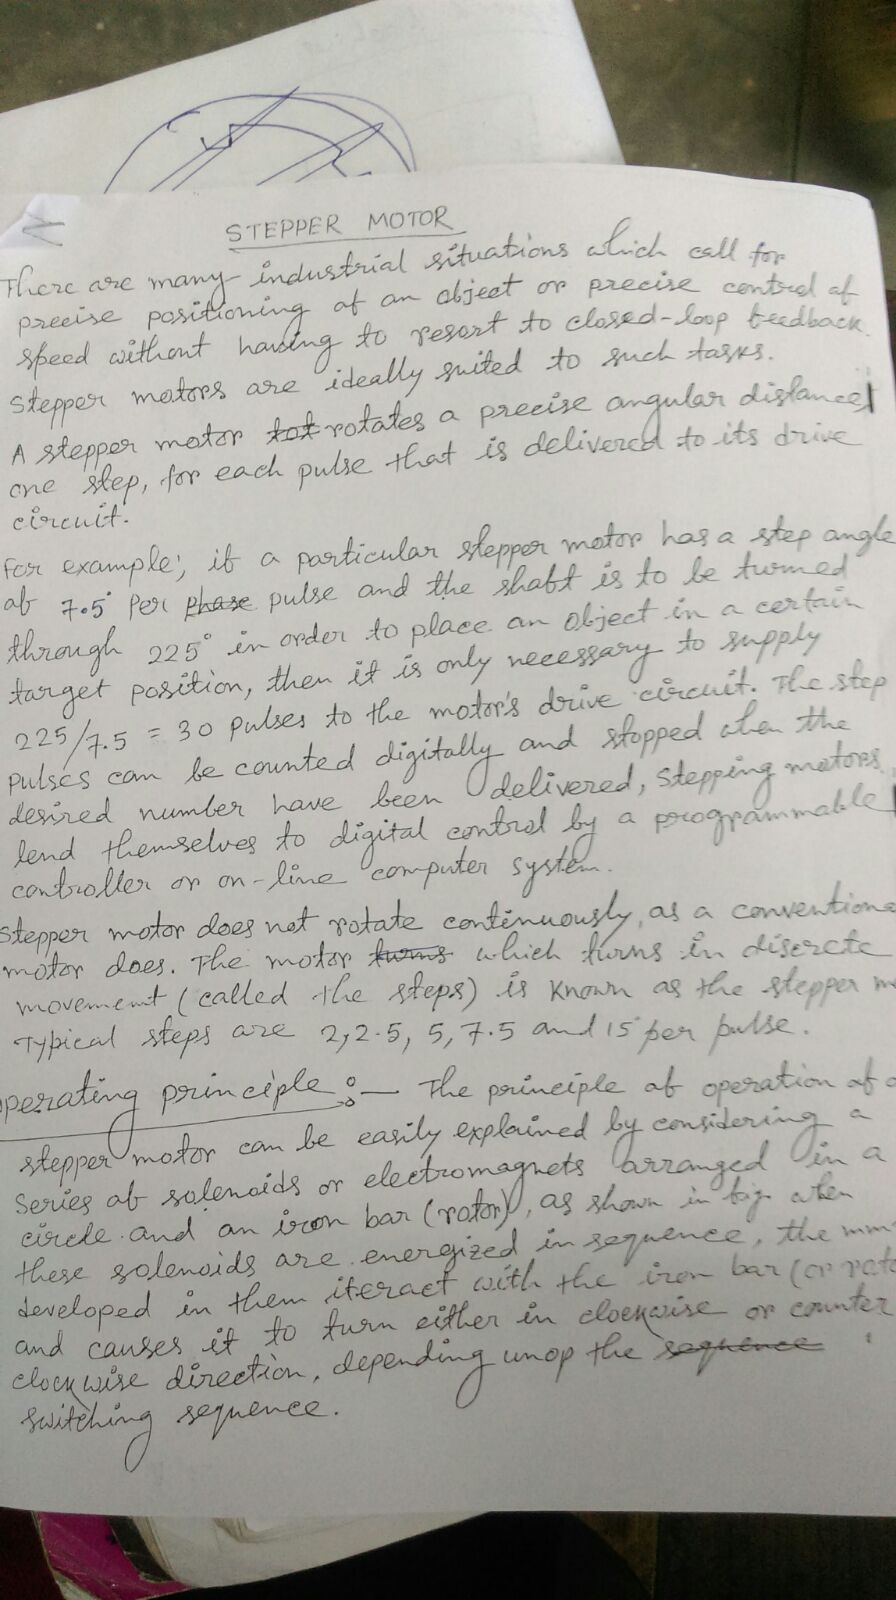 STEPPER MOTOR
There are many industrial situations which call for
precise positioning of an object or precise control of
speed without having to resort to closed-loop feedback.
Stepper motors are ideally suited to such tasks.
A stepper motor tot rotates a precise angular distance,
one step, for each pulse that is delivered to its drive
circuit.
For example, if a particular stepper motor has a step angle
of 7.5° Per phase pulse and the shaft is to be turned
through 225° in order to place an object in a certain
target position, then it is only necessary to supply
225/7.5 = 30 pulses to the motor's drive circuit. The step
pulses can be counted digitally and stopped when the
desired number have been delivered, Stepping motors
lend themselves to digital control by a programmable
controller or on-line computer system.
Stepper motor does not rotate continuously, as a conventiona
motor does. The motor turns which turns in discrete
movement (called the steps) is known as the stepper m
Typical steps are 2, 2.5, 5, 7.5 and 15° per pulse.
operating principle :- The principle of operation of a
stepper motor can be easily explained by considering a
series of solenoids or electromagnets arranged in a
circle and an iron bar (rotor), as shown in fig. when
these solenoids are energized in sequence, the mm
developed in them iteract with the iron bar (or roto
and causes it to turn either in clockwise or counter
clockwise direction, depending unop the sequence
switching sequence.